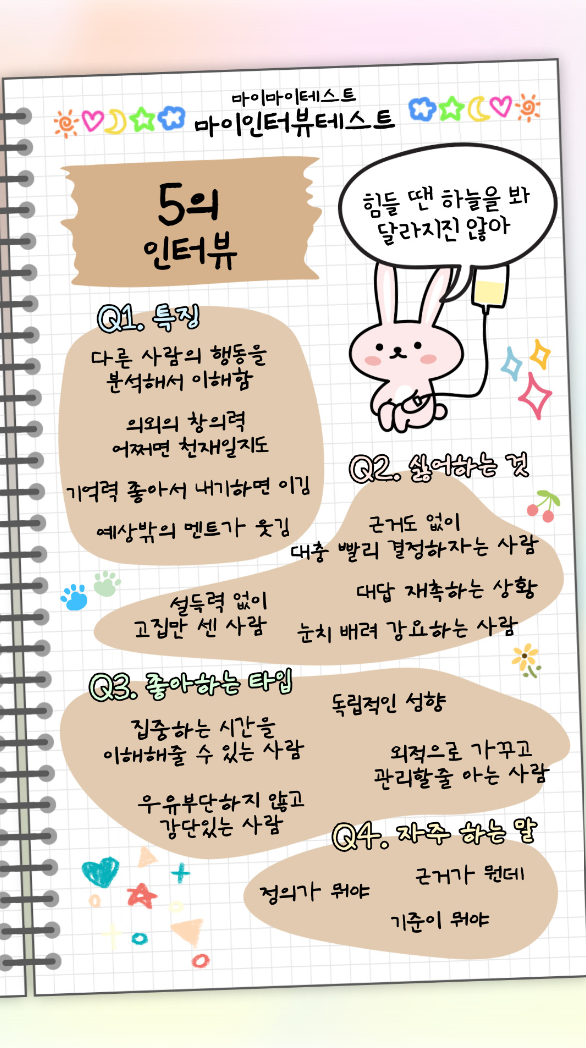 마이마이테스트
마이인터뷰테스트
5의
인터뷰
힘들 땐 하늘을 봐
달라지진 않아
Q1. 특징
다른 사람의 행동을
분석해서 이해함
의외의 창의력
어쩌면 천재일지도
기억력 좋아서 내기하면 이김
예상밖의 멘트가 웃김
Q2. 싫어하는 것
근거도 없이
대충 빨리 결정하자는 사람
대답 재촉하는 상황
설득력 없이
고집만 센 사람
눈치 배려 강요하는 사람
Q3. 좋아하는 타입
독립적인 성향
집중하는 시간을
이해해줄 수 있는 사람
외적으로 가꾸고
관리할줄 아는 사람
우유부단하지 않고
강단있는 사람
Q4. 자주 하는 말
근거가 뭔데
정의가 뭐야
기준이 뭐야